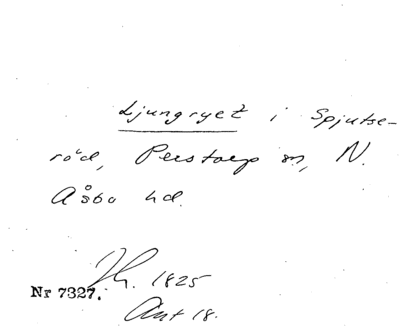 Ljungryet i Spjutse-
röd, Perstorp sn, N.
Åsbo hd.
Nr 7327. Jh. 1825
Akt 18.